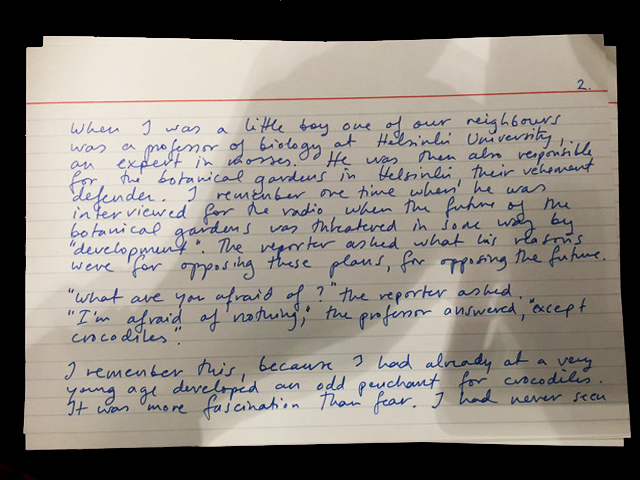 2.
When I was a little boy one of our neighbours
was a professor of biology at Helsinki University,
an expert in mosses. He was then also responsible
for the botanical gardens in Helsinki their vehement
defender. I remember one time when he was
interviewed for the radio when the future of the
botanical gardens was threatened in some way by
"development". The reporter asked what his reasons
were for opposing these plans, for opposing the future.
"What are you afraid of?" the reporter asked.
"I'm afraid of nothing," the professor answered, "except
crocodiles".
I remember this, because I had already at a very
young age developed an odd penchant for crocodiles.
It was more fascination than fear. I had never seen